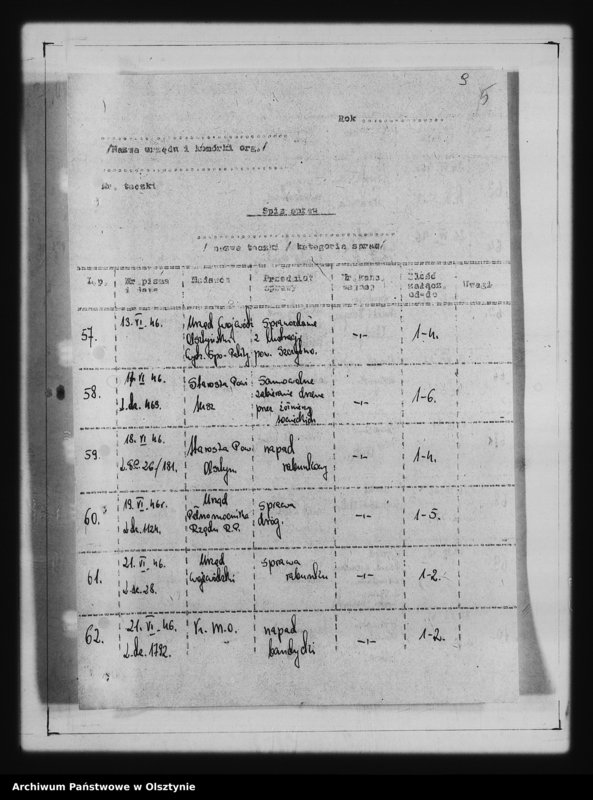 9
5
Rok ................
/Nazwa urzędu i komórki org./
Nr. teczki
Spis spraw
/ nazwa teczki / kategoria spraw/
L.p. Nr. pisma i data Nadawca Przedmiot sprawy Nr. kanc. Ilość załącz. od-do Uwagi
57. 13.VI.46. Urząd Wojewódz Sprawozdanie -"- 1-4.
Olsztyński z lustracji
Społ. Polity. pow. Szczytno.
58. 17.VI.46. Starosta Pow. Samowolne -"- 1-6.
L.dz. 463. zabieranie drzewa
przez żołnierzy
sowieckich
59. 18.VI.46. Starosta Pow. napad -"- 1-4.
26/181. Olsztyn rabunkowy
60. 19.VI.46r. Urząd sprawa -"- 1-5.
L.dz. 1124. Pełnomocnika dróg.
Rządu R.P.
61. 21.VI.46. Urząd sprawa -"- 1-2.
L.dz. 28. Wojewódzki rabunku
62. 21.VI.46. K. M.O. napad -"- 1-2.
L.dz. 1792. bandycki
Archiwum Państwowe w Olsztynie